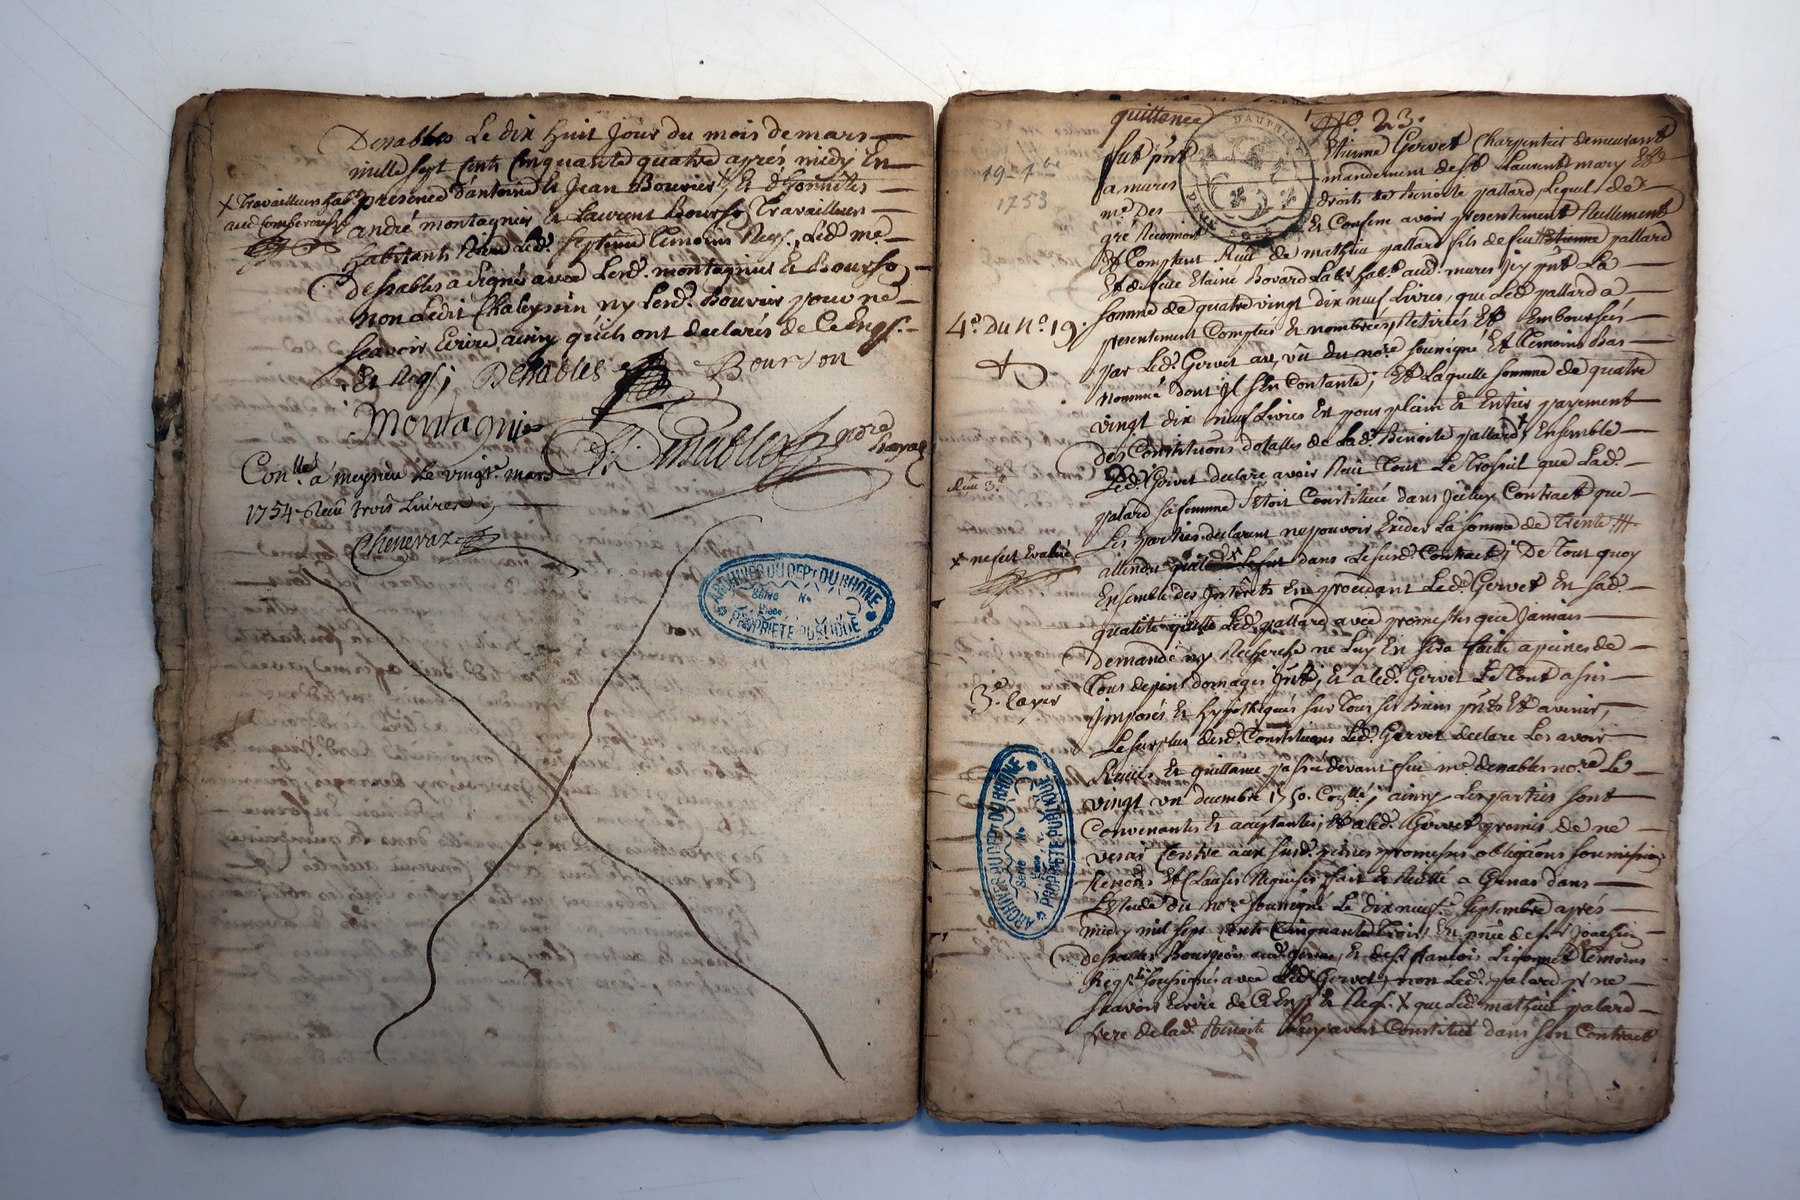 Denables Le dix huit Jour du mois de mars
mille sept Cents Cinquante quatre aprés midy En
presence d'antoine & Jean Bouvier X & d'honnetes
X Travailleurs hab.
andré montagnier & Laurent Bourson Travailleurs
habitants Temoins Req. Led. me
Denables a signé avec Lesd. montagnier & Bourson
non Ledit Chaleyssin ny Lesd. Bouvier pour ne
scavoir Ecrire ainsy qu'ils ont declarés de Ce Enq.
Et Req.; Denables Bourson
Montagnier
Denables
Con.llé à meyrieu Le vingt mars
1754 Receu trois Livres
Cheneraz
ARCHIVES DU DEPT DU RHONE
Série No
Pièce
PROPRIETE PUBLIQUE
quittance No 23.
DAUPHINE
fut p'nt Etienne Gervet Charpentier demeurant
a mures mandement de St Laurent mary Et
19 7bre
1753
me Des droits de Benoite pallard, Lequel de
gré & Confesse avoir presentement Reellement
& Comptant Receu de mathieu pallard fils de feu Etienne pallard
Et de feue Bovard Lab. hab. aud. mures Icy p'nt La
somme de quatre vingt dix neuf Livres, que Led. pallard a
4e. du No. 19.
presentement Comptés & nombrés, Retirés Et Emboursés
par Led. Gervet au vû du no.re soussigné Et Temoins bas
nommés dont Il s'En Contante; Et Laquelle somme de quatre
vingt dix neuf Livres Est pour plain & Entier payement
des Constitutions dotalles de Lad. Benoite pallard X, Ensemble
Led. Gervet declare avoir Receu Tout Le Trossel que Lad.
palard sa femme s'Etoit Constituée dans Contract que
Les parties declarent ne pouvoir Exceder La somme de Trente
X ne fut Evalué
attendu dans Le susd. Contract; De Tout quoy
Ensemble des Interêts En procedant Led. Gervet En sad.
qualité quitte Led. pallard avec promesses que Jamais
demande ny Recherche ne Luy En sera faitte a peines de
Tous depens domages Int., & a Led. Gervet Le Tout assis
3e. Cayer
Imposés & hypothequés sur Tous ses Biens p'nts Et avenir;
Le surplus desd. Constitutions Led. Gervet declare Les avoir
Receus & quittance passée devant feu me. denables no.re Le
vingt un decembre 1750. Con.llé; ainsy Les parties sont
Convenantes & acceptantes, Et a Led. Gervet promis de ne
venir Contre aux susd. peines promesses obligations soumissions
Renons Et Clauses Requises; fait & Recitté a Genas dans
L'Etude du no.re soussigné Le dix neuf Septembre aprés
midy mil sept cents Cinquante trois, En p'nce de Sr.
Bourgeois aud. Genas, & de Sr francois Temoins
Req. soussignés avec Led. Gervet, non Led. palard pr ne
scavoir Ecrire de Ce Enq. & Req. X que Led. mathieu palard
frere de Lad. Benoite Luy avoit Constitué dans Son Contract
ARCHIVES DU DEPT DU RHONE
Série No
Pièce
PROPRIETE PUBLIQUE